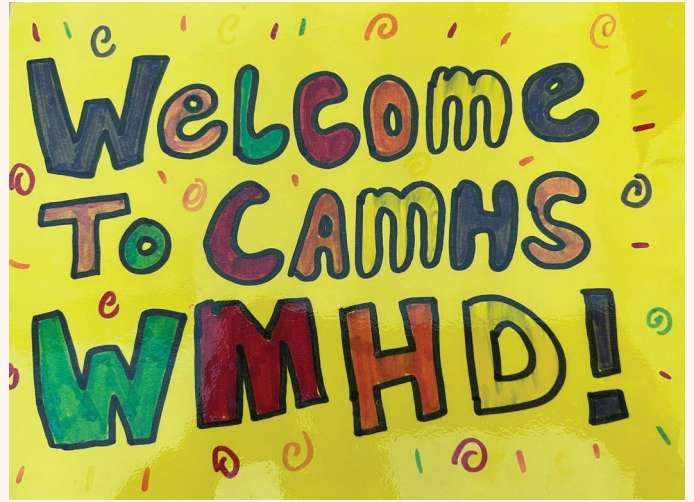 Welcome
To CAMHS
WMHD!